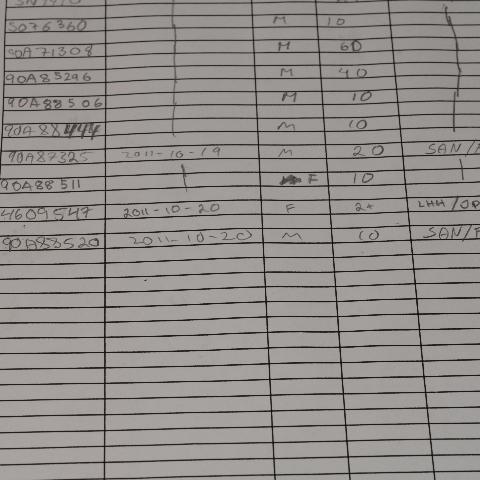 5076360 M 10
90A71308 M 60
90A85296 M 40
90A88506 M 10
90A88444 M 10
90A87325 2011-10-19 M 20 SAN/
90A88511 F 10
4609547 2011-10-20 F 2+ LHH/OP
90A88520 2011-10-20 M 10 SAN/F